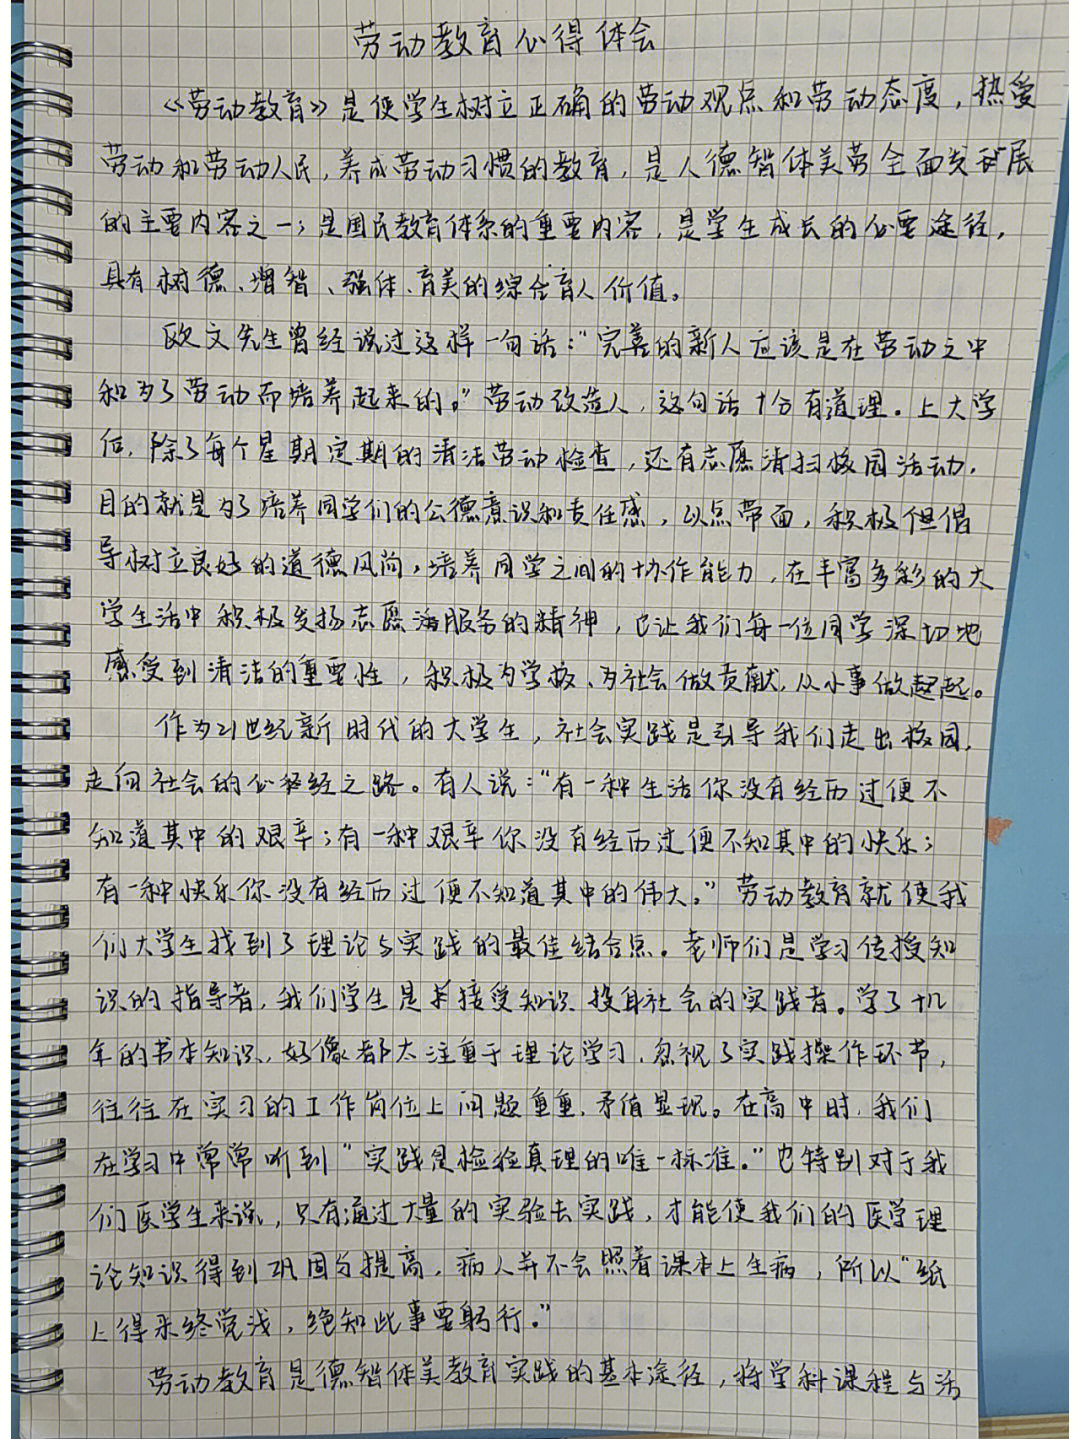 劳动教育心得体会
《劳动教育》是使学生树立正确的劳动观点和劳动态度，热爱
劳动和劳动人民，养成劳动习惯的教育，是人德智体美劳全面发展
的主要内容之一；是国民教育体系的重要内容，是学生成长的必要途径，
具有树德、增智、强体、育美的综合育人价值。
欧文先生曾经说过这样一句话：“完善的新人应该是在劳动之中
和为了劳动而培养起来的。”劳动改造人，这句话十分有道理。上大学
后，除了每个星期定期的清洁劳动检查，还有志愿清扫校园活动，
目的就是为了培养同学们的公德意识和责任感，以点带面，积极但倡
导树立良好的道德风尚，培养同学之间的协作能力，在丰富多彩的大
学生活中积极发扬志愿服务的精神，也让我们每一位同学深切地
感受到清洁的重要性，积极为学校、为社会做贡献，从小事做起。
作为21世纪新时代的大学生，社会实践是引导我们走出校园，
走向社会的必经之路。有人说：“有一种生活你没有经历过便不
知道其中的艰辛；有一种艰辛你没有经历过便不知其中的快乐；
有一种快乐你没有经历过便不知道其中的伟大。”劳动教育就使我
们大学生找到了理论与实践的最佳结合点。老师们是学习传授知
识的指导者，我们学生是接受知识、投身社会的实践者。学了十几
年的书本知识，好像都太注重于理论学习，忽视了实践操作环节，
往往在实习的工作岗位上问题重重，矛盾显现。在高中时，我们
在学习中常常听到“实践是检验真理的唯一标准。”也特别对于我
们医学生来说，只有通过大量的实验去实践，才能使我们的医学理
论知识得到巩固与提高，病人并不会照着课本上生病，所以“纸
上得来终觉浅，绝知此事要躬行。”
劳动教育是德智体美教育实践的基本途径，将学科课程与活